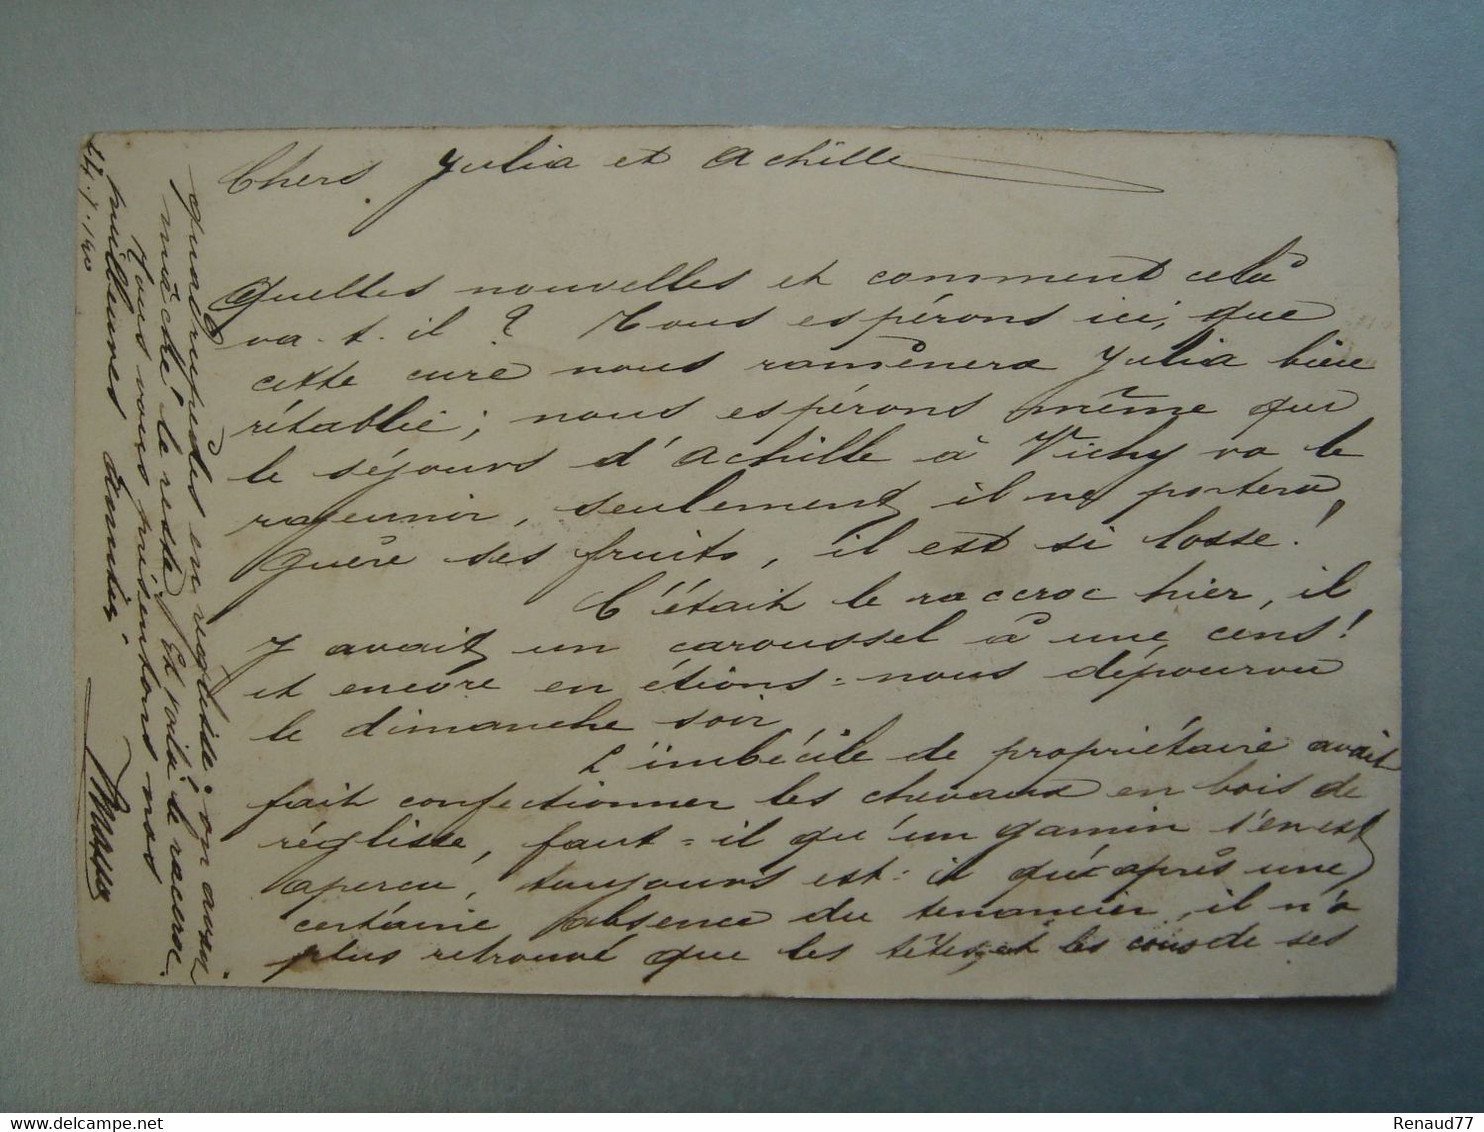 Chers Julia et Achille
Quelles nouvelles et comment celà
va-t-il ? Tous espérons ici, que
cette cure nous ramènera Julia bien
rétablie ; nous espérons même que
le séjours d'Achille à Vichy va le
rajeunir, seulement il ne portera
guère ses fruits, il est si losse !
C'était le raccroc hier, il
y avait un caroussel à une cens !
et encore en étions-nous dépourvu
le dimanche soir
L'imbécile de propriétaire avait
fait confectionner les chevaux en bois de
réglisse, faut-il qu'un gamin s'en est
aperçu, toujours est-il qu'après une
certaine absence du tenancier, il n'a
plus retrouvé que les têtes, et les cous de ses
quadrupèdes en réglisse, on avait
mâché le reste. Et voilà le raccroc.
Tous vous présentons nos
meilleures